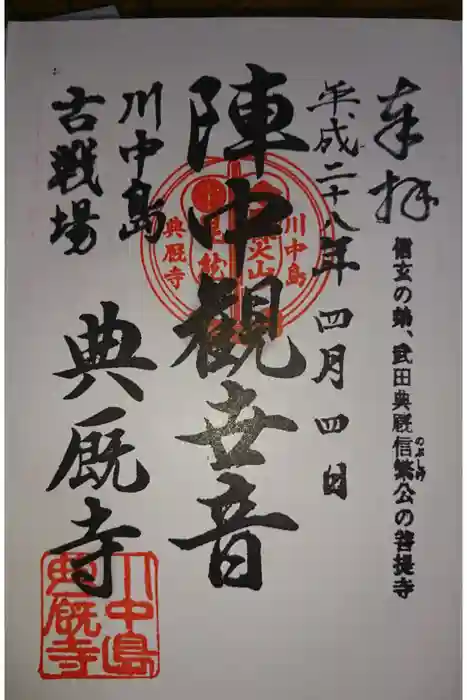 奉拝
信玄の弟、武田典厩信繁公の菩提寺
のぶしげ
平成二十八年四月四日
陣中観世音
川中島
風林火山
典厩寺
川中島
古戦場
典厩寺
川中島
典厩寺